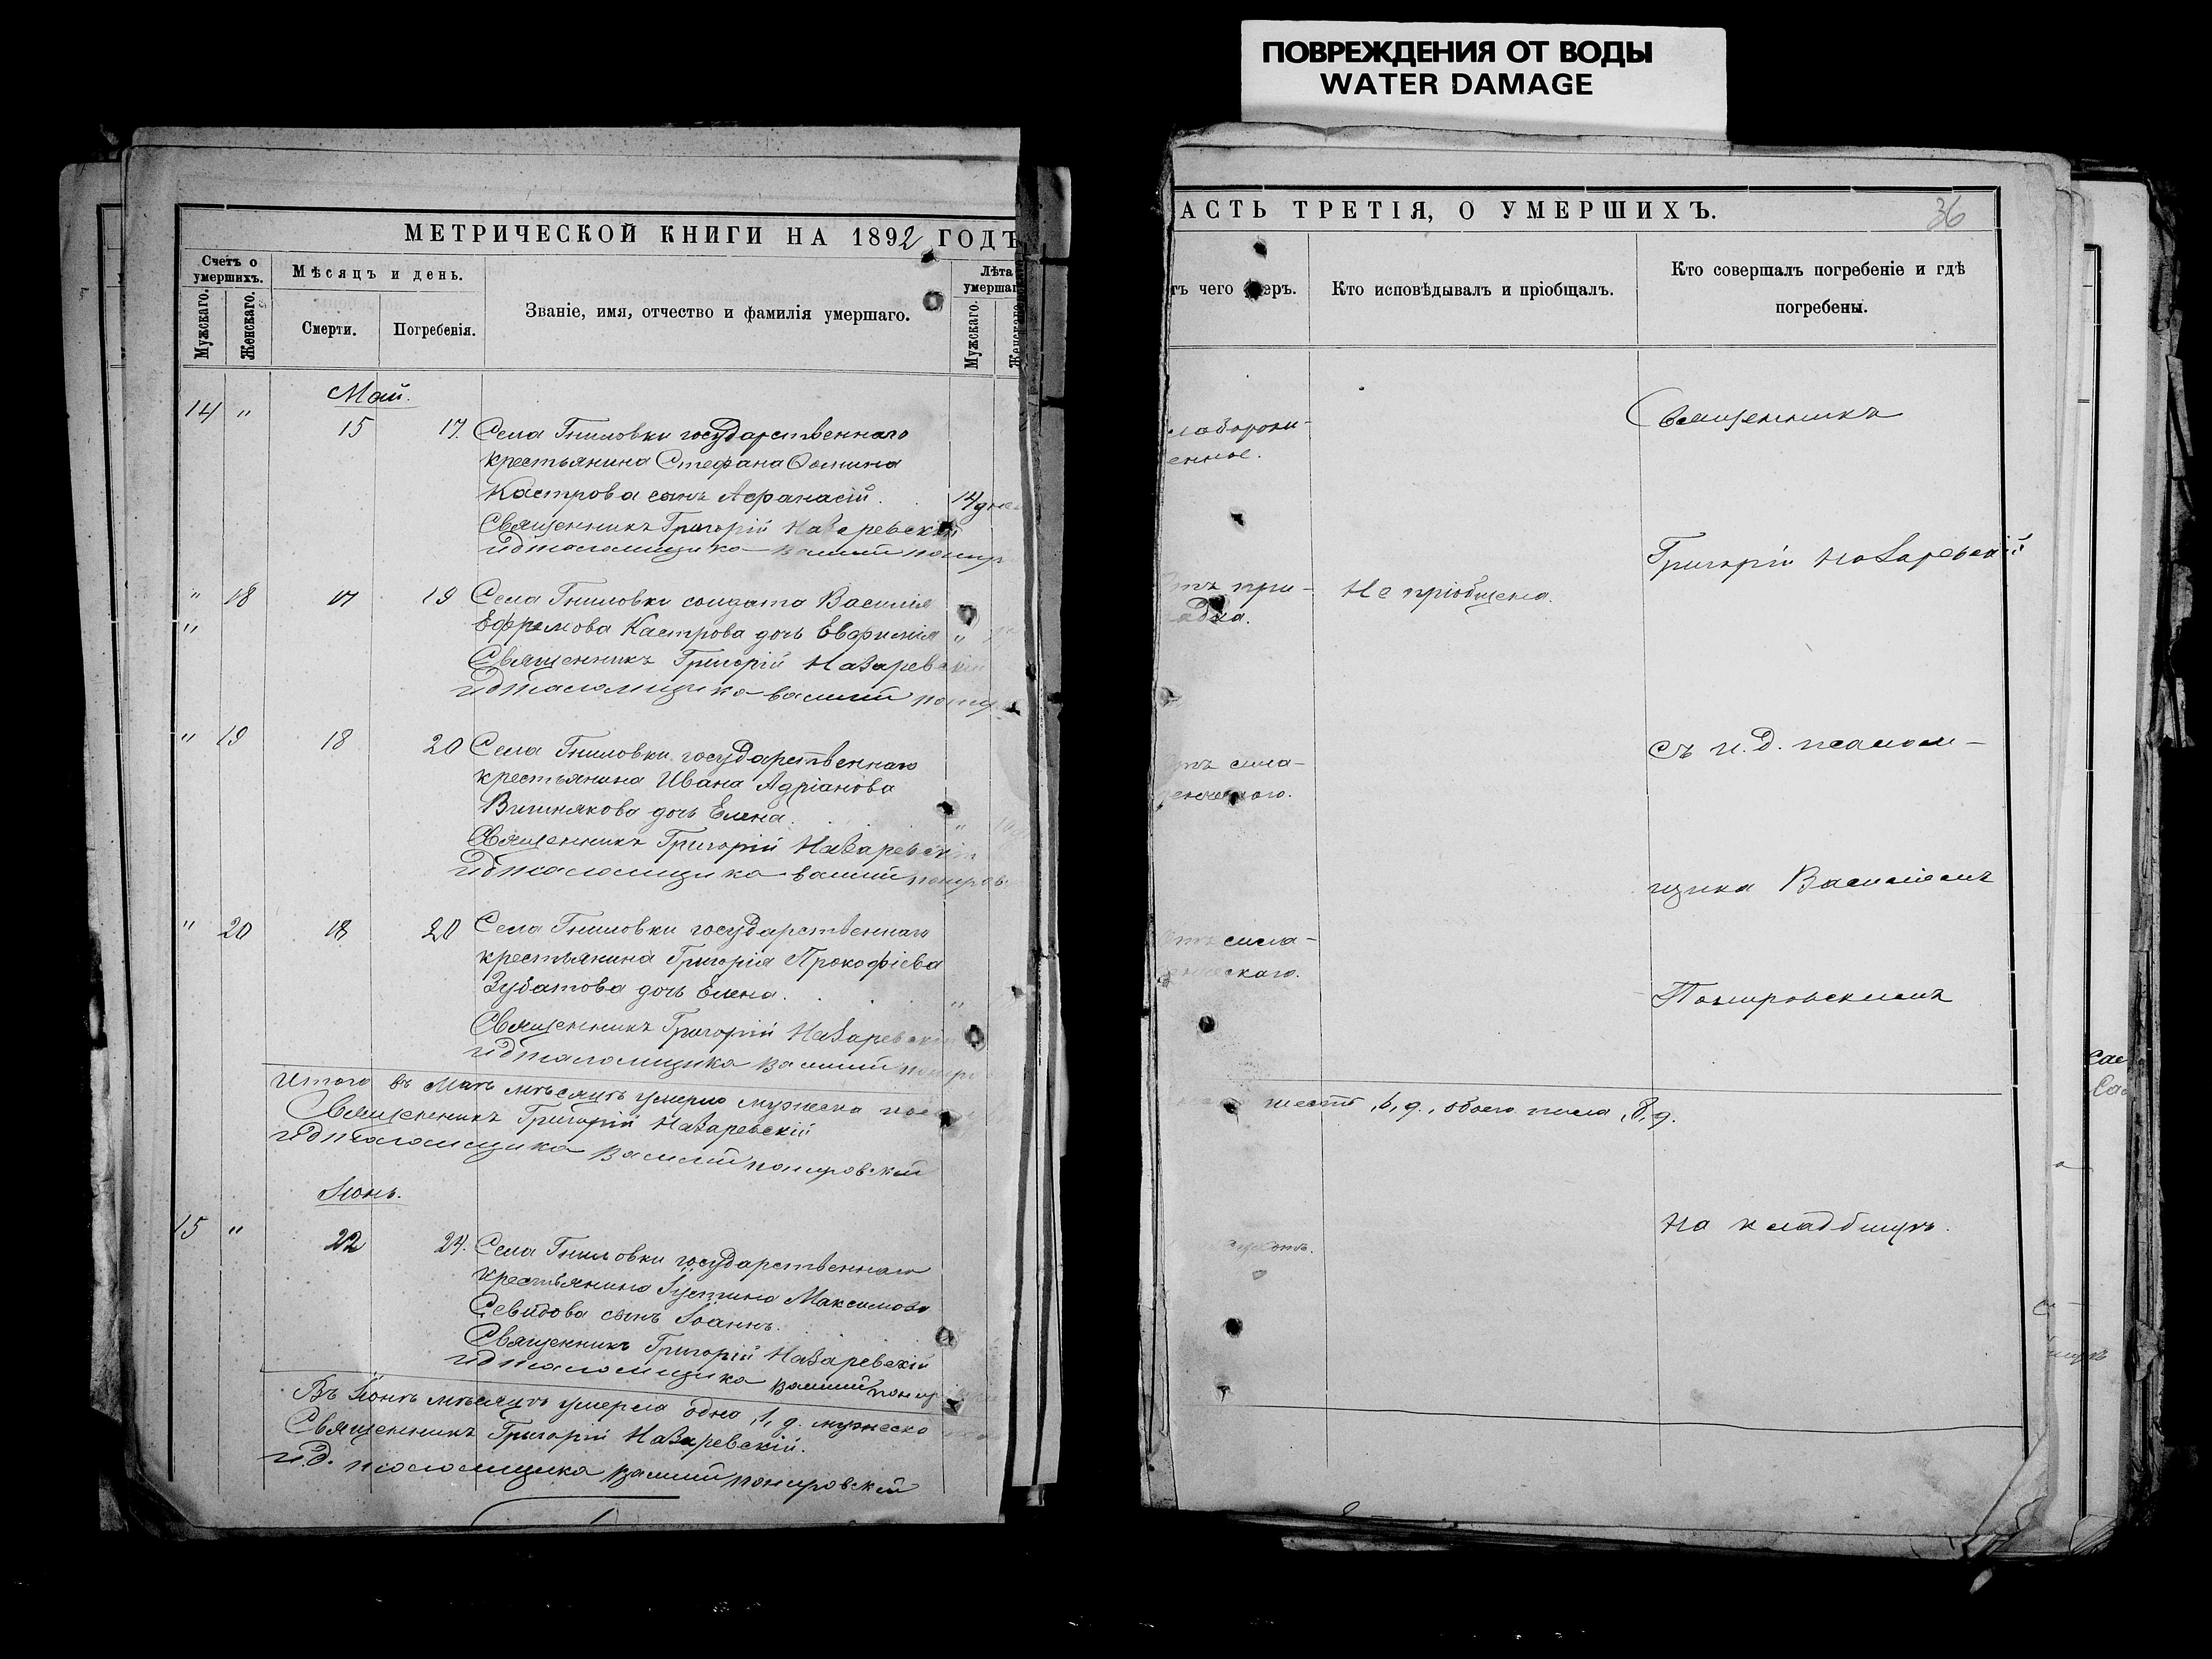 ПОВРЕЖДЕНИЯ ОТ ВОДЫ
WATER DAMAGE
МЕТРИЧЕСКОЙ КНИГИ НА 1892 ГОДЪ
Счетъ о умершихъ.
Мужскаго.
Женскаго.
Мѣсяцъ и день.
Смерти.
Погребенія.
Званіе, имя, отчество и фамилія умершаго.
Лѣта
умершаг
Мужскаго.
Женскаго
Май.
14 " 15 17. Села Гниловки государственнаго
крестьянина Стефана Ѳомина
Кастрова сынъ Аѳанасій. 14 дне
Священникъ Григорій Назаревскій
и д псаломщика Василій Понир
" 18 17 19 Села Гниловки солдата Василія
" Ефремова Кастрова дочь Евфимія "
Священникъ Григорій Назаревскій
и д псаломщика Василій Пониро
" 19 18 20 Села Гниловки государственнаго
крестьянина Ивана Адріанова
Вишнякова дочь Елена. "
Священникъ Григорій Назаревскій
и д псаломщика Василій Пониров
" 20 18 20 Села Гниловки государственнаго
крестьянина Григорія Прокофіева
Зубатова дочь Елена. "
Священникъ Григорій Назаревскій
и д псаломщика Василій Понир
Итого въ Маѣ мѣсяцѣ умерло мужеска пол
Священникъ Григорій Назаревскій
и д псаломщика Василій Понировскій
Іюнь.
15 " 22 24. Села Гниловки государственнаго
крестьянина Іустина Максимова
сынъ Іоаннъ.
Священникъ Григорій Назаревскій
и д псаломщика Василій Понир
Въ Іюнѣ мѣсяцѣ умерла одна, 1, д. мужеска
Священникъ Григорій Назаревскій.
и.д. псаломщика Василій Понировскій
АСТЬ ТРЕТІЯ, О УМЕРШИХЪ.
36
тъ чего меръ.
Кто исповѣдывалъ и пріобщалъ.
Кто совершалъ погребеніе и гдѣ
погребены.
Священникъ
слаборож-
енное.
Григорій Назаревскій
отъ при- Не пріобщена.
падка.
съ и. д. псалом-
отъ мла-
денческаго.
щика Василіемъ
отъ мла-
денческаго.
Понировскимъ
шесть, 6, д., обоего пола, 8, д.
На кладбищѣ.